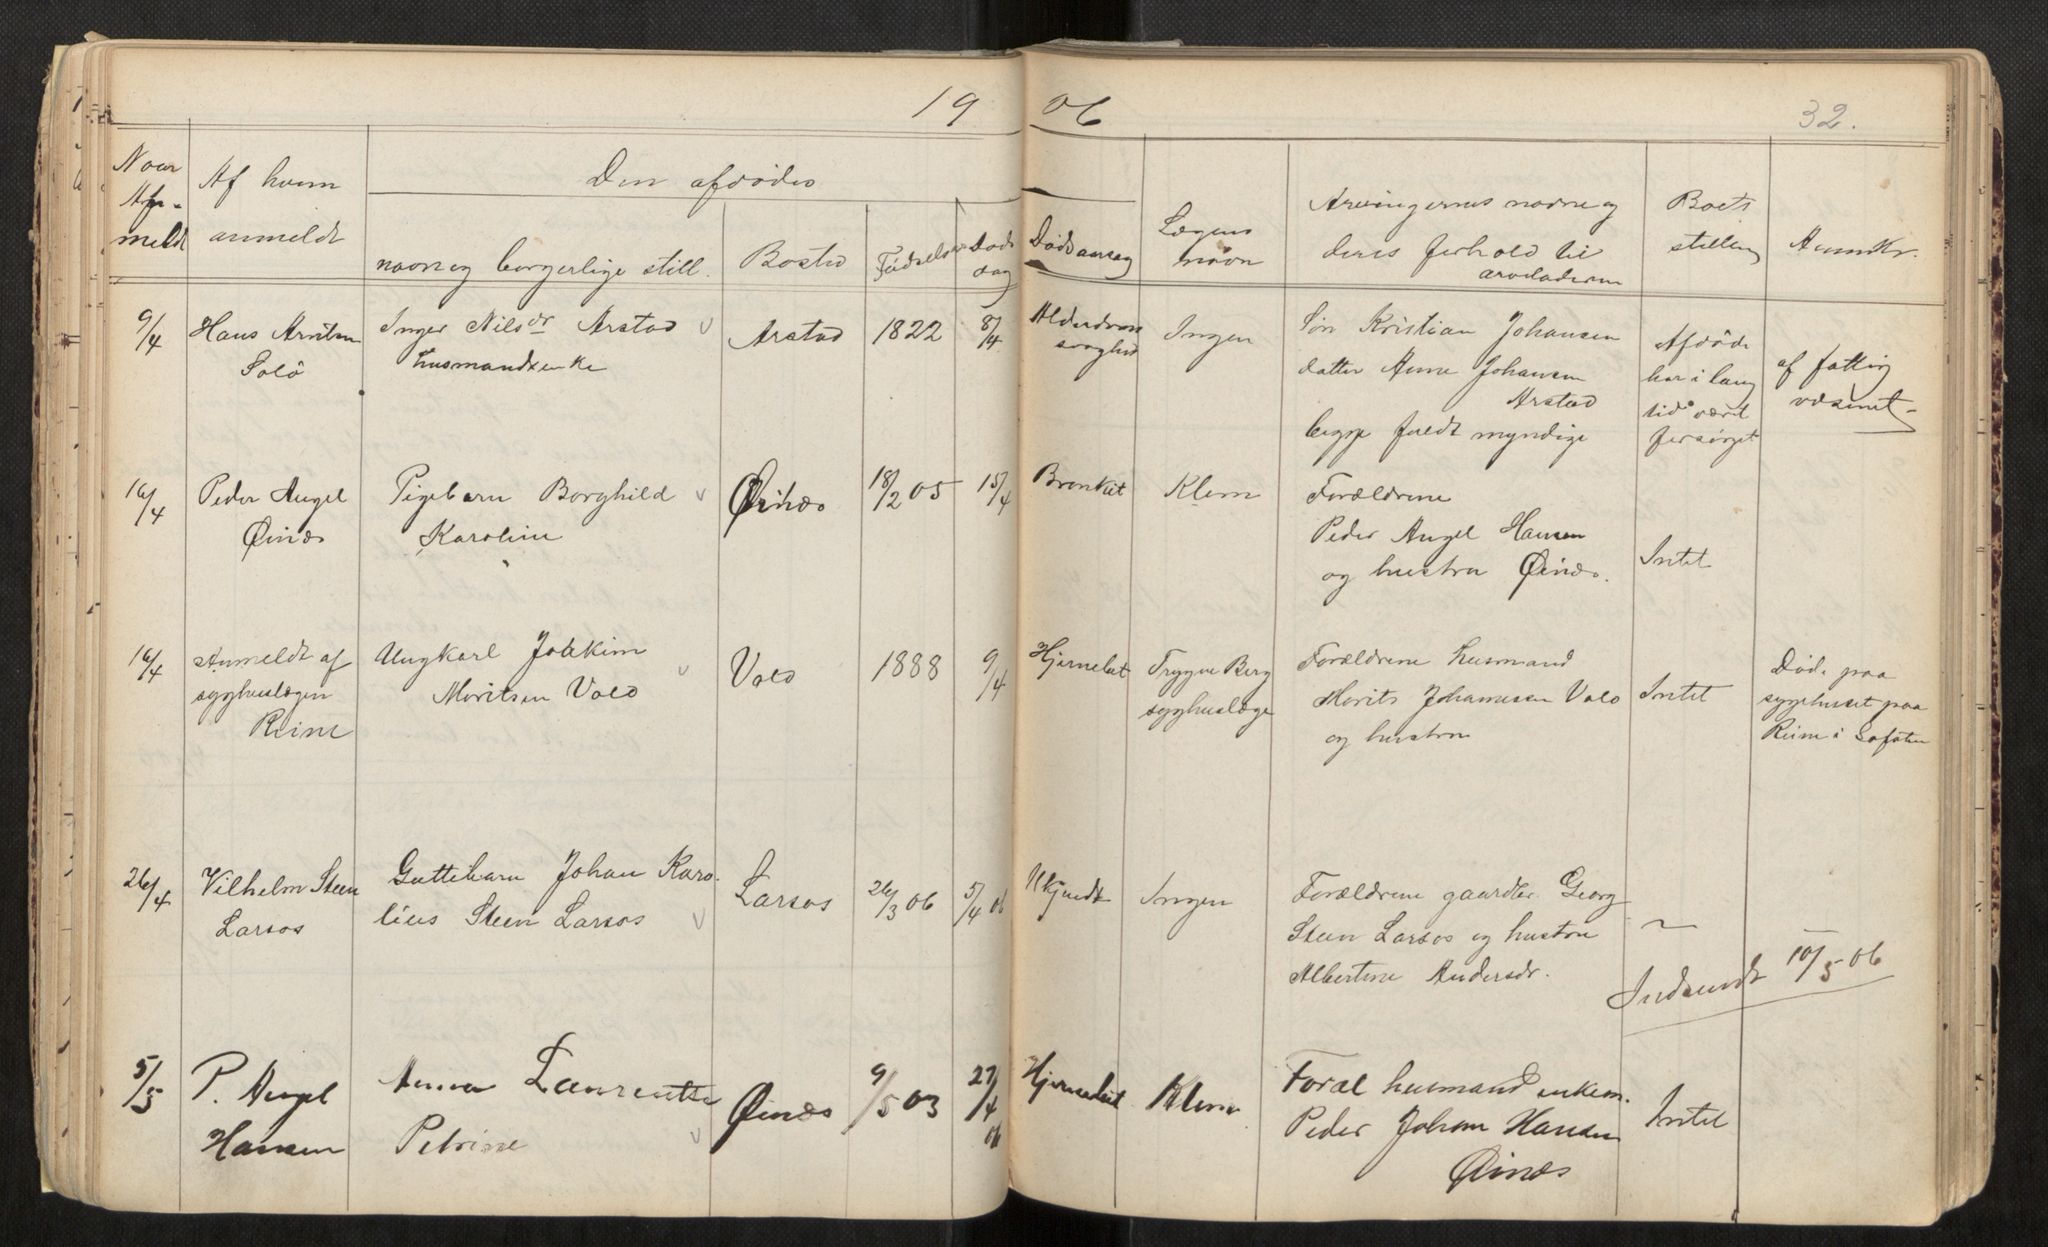 19 06
32.
Naar
An-
meldt
Af hvem
anmeldt
Den afdødes
navn og borgerlige still.
Bosted
Fødsels
Døds
dag
Dødsaarsag
Lægens
navn
Arvingernes navne og
deres forhold til
arveladeren
Boets
stilling
Anmkr.
9/4
Hans Arntsen
Solö
Inger Nilsdr Arstad
husmandsenke
Arstad
1822
8/4
Alderdoms
svaghed
Ingen
Søn Kristian Johansen
datter Anne Johansen
Arstad
begge fuldt myndige
Afdöde
har i lang
tid været
forsörget
af fattig
væsenet
16/4
Peder Angel
Øinæs
Pigebarn Borghild
Karoline
Øinæs
18/2 05
15/4
Bronkit
Klem
Forældrene
Peder Angel Hansen
og hustru Øinæs.
Intet
16/4
Anmeldt af
sygehuslægen
Reine
Ungkarl Joakim
Moritsen Vold
Vold
1888
9/4
Hjernebet
Trygve Berg
sygehuslæge
Forældrene husmand
Morits Johannesen Vold
og hustru
Intet
Död paa
sygehuset paa
Reine i Lofoten
26/4
Vilhelm Steen
Larsos
Guttebarn Johan Karo
lius Steen Larsos
Larsos
26/3 06
5/4 06
Ukjendt
Ingen
Forældrene gaardbr. Georg
Steen Larsos og hustru
Albertine Andersdr.
~
Indsendt 10/5 06
5/5
P. Angel
Hansen
Anna Laurentse
Petrine
Øinæs
9/5 03
27/4
06
Hjernebet
Klem
Foræl husmand enkem.
Peder Johan Hansen
Øinæs
Intet